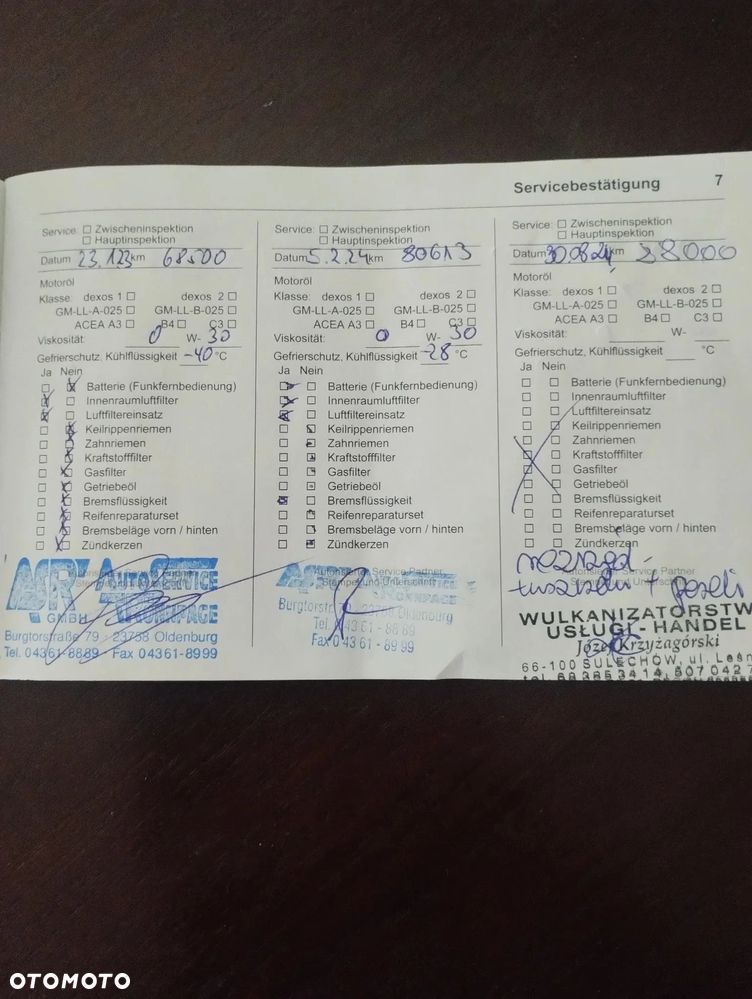 Servicebestätigung 7
Service: □ Zwischeninspektion
□ Hauptinspektion
Datum 23.1.23 km 68500
Motoröl
Klasse: dexos 1 □ dexos 2 □
GM-LL-A-025 □ GM-LL-B-025 □
ACEA A3 □ B4 □ C3 □
Viskosität: 0 W- 30
Gefrierschutz, Kühlflüssigkeit -40 °C
Ja Nein
Batterie (Funkfernbedienung)
Innenraumluftfilter
Luftfiltereinsatz
Keilrippenriemen
Zahnriemen
Kraftstofffilter
Gasfilter
Getriebeöl
Bremsflüssigkeit
Reifenreparaturset
Bremsbeläge vorn / hinten
Zündkerzen
AUTOSERVICE
GMBH
Burgtorstraße 79 - 23758 Oldenburg
Tel. 04361-8889 Fax 04361-8999
Service: □ Zwischeninspektion
□ Hauptinspektion
Datum 5.2.24 km 80613
Motoröl
Klasse: dexos 1 □ dexos 2 □
GM-LL-A-025 □ GM-LL-B-025 □
ACEA A3 □ B4 □ C3 □
Viskosität: 0 W- 30
Gefrierschutz, Kühlflüssigkeit -28 °C
Ja Nein
Batterie (Funkfernbedienung)
Innenraumluftfilter
Luftfiltereinsatz
Keilrippenriemen
Zahnriemen
Kraftstofffilter
Gasfilter
Getriebeöl
Bremsflüssigkeit
Reifenreparaturset
Bremsbeläge vorn / hinten
Zündkerzen
Autorisierter Service Partner
Stempel und Unterschrift
Burgtorstr 23758 Oldenburg
Tel 04361 - 8889
Fax 04361 - 8999
Service: □ Zwischeninspektion
□ Hauptinspektion
Datum 30.08.24 km 88000
Motoröl
Klasse: dexos 1 □ dexos 2 □
GM-LL-A-025 □ GM-LL-B-025 □
ACEA A3 □ B4 □ C3 □
Viskosität: W-
Gefrierschutz, Kühlflüssigkeit °C
Ja Nein
Batterie (Funkfernbedienung)
Innenraumluftfilter
Luftfiltereinsatz
Keilrippenriemen
Zahnriemen
Kraftstofffilter
Gasfilter
Getriebeöl
Bremsflüssigkeit
Reifenreparaturset
Bremsbeläge vorn / hinten
Zündkerzen
Autorisierter Service Partner
Stempel und Unterschrift
WULKANIZATORSTW
USŁUGI - HANDEL
Józef Krzyżagórski
66-100 SULECHÓW, ul. Leśn
OTOMOTO